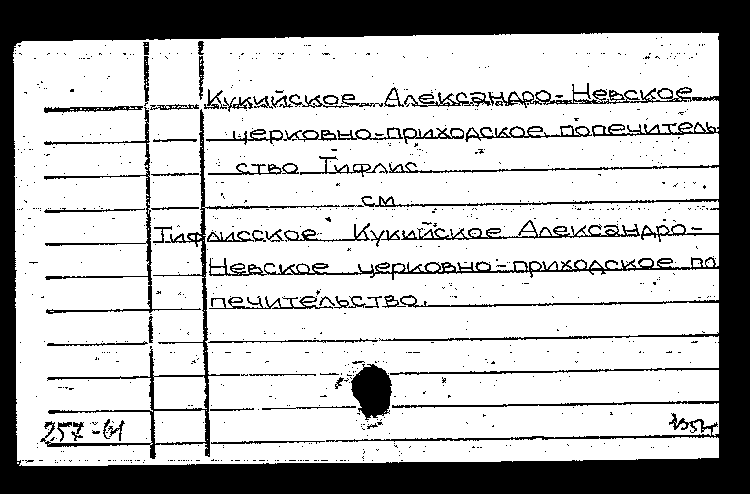 Кукийское Александро-Невское
церковно-приходское попечитель
ство Тифлис
см
Тифлисское Кукийское Александро-
Невское церковно-приходское по
печительство.
257-61